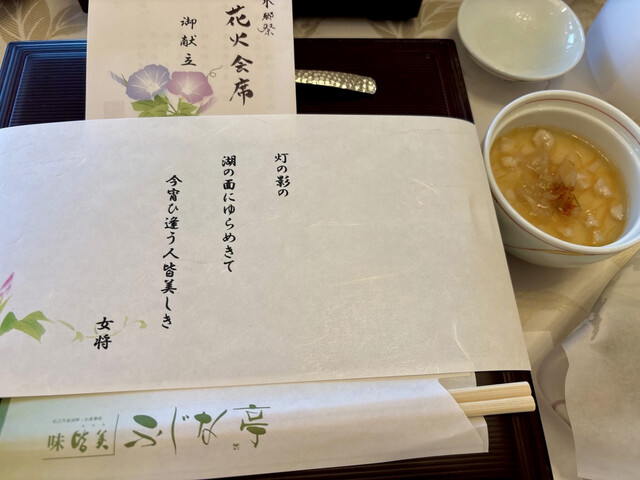 水郷祭
花火会席
御献立
灯の影の
湖の面にゆらめきて
今宵ひ逢う人皆美しき
女将
味皆美
ふじな亭